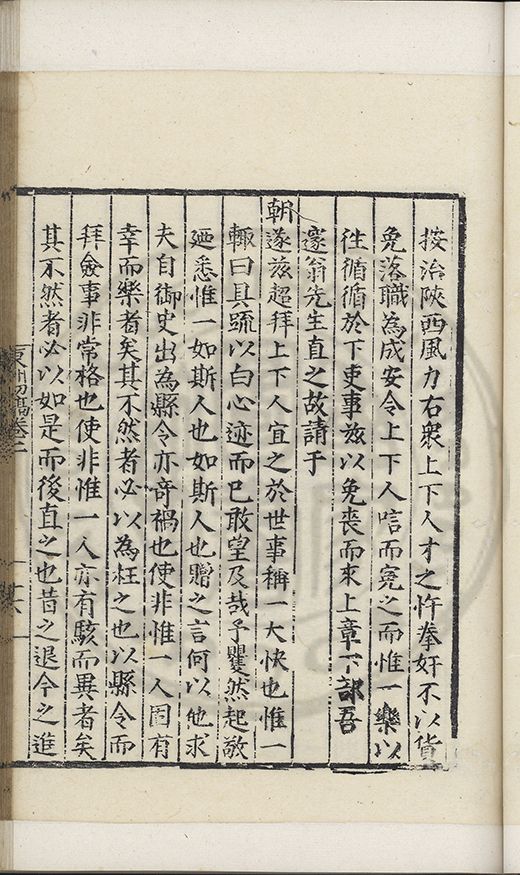 按治陝西風力右衆上下人才之忤拳奸不以貨
免落職為成安令上下人唁而寃之而惟一樂以
徃循循於下吏事兹以免喪而來上章下部吾
邃翁先生直之故請于
朝遂兹超拜上下人宜之於世事稱一大快也惟一
輙曰具䟽以白心迹而已敢望及哉予矍然起敬
廼悉惟一如斯人也如斯人也贈之言何以他求
夫自御史出為縣令亦奇禍也使非惟一人固有
幸而樂者矣其不然者必以為枉之也以縣令而
拜僉事非常格也使非惟一人亦有駭而異者矣
其不然者必以如是而後直之也昔之退今之進
初稿卷二